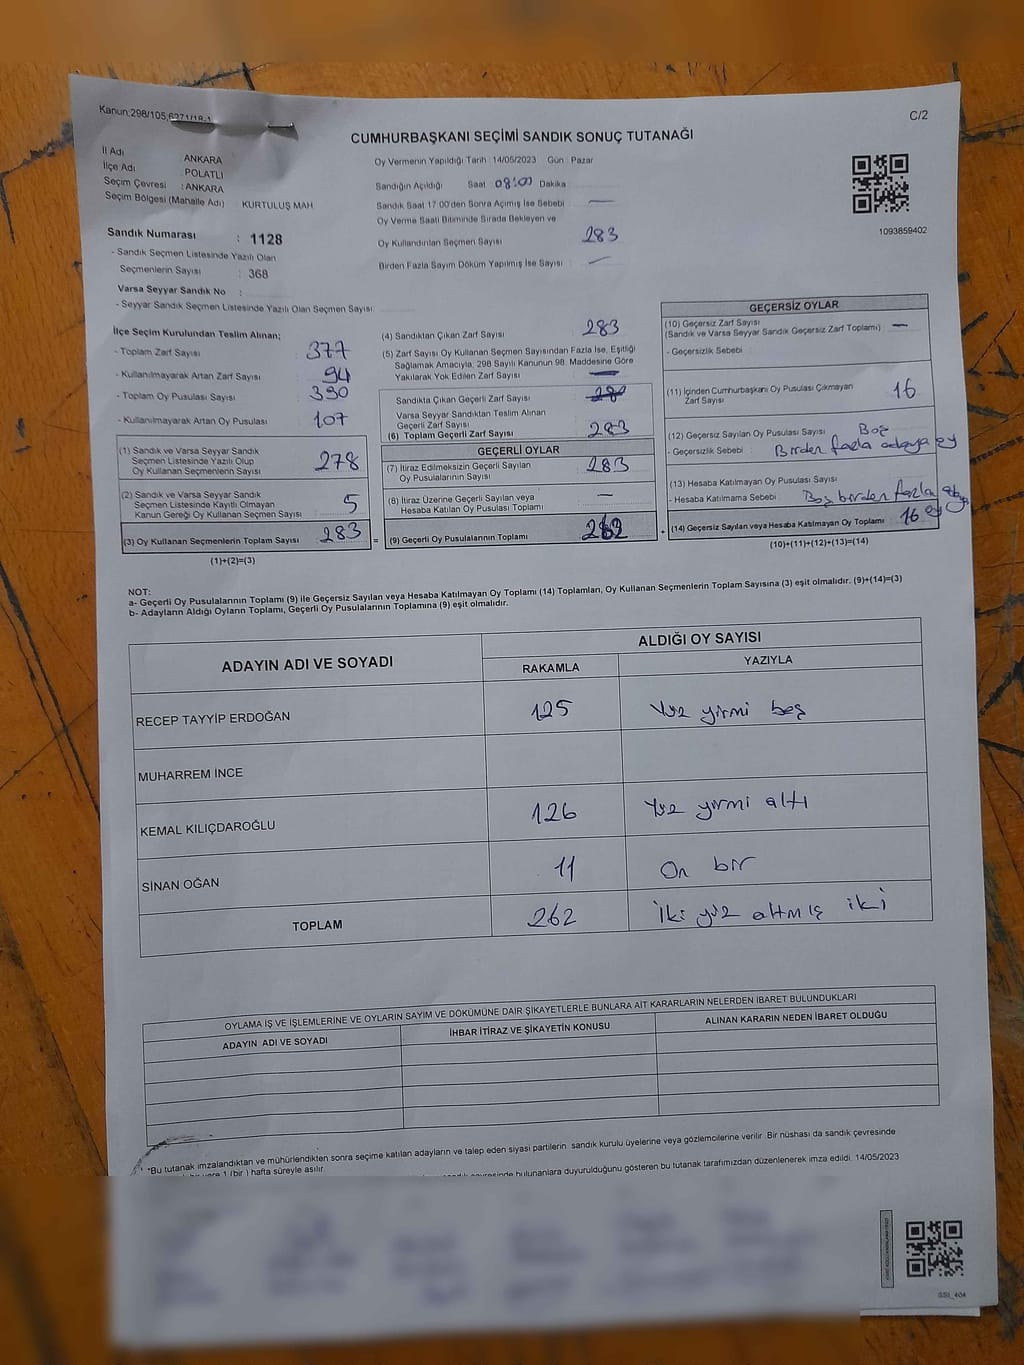 Kanun:298/105,6271/18-1
C/2
CUMHURBAŞKANI SEÇİMİ SANDIK SONUÇ TUTANAĞI
İl Adı ANKARA
İlçe Adı POLATLI
Seçim Çevresi : ANKARA
Seçim Bölgesi (Mahalle Adı) KURTULUŞ MAH
Oy Vermenin Yapıldığı Tarih : 14/05/2023 Gün : Pazar
Sandığın Açıldığı Saat 08:00 Dakika
Sandık Saat 17:00'den Sonra Açımış İse Sebebi : —
Oy Verme Saati Bitiminde Sırada Bekleyen ve
Oy Kullandırılan Seçmen Sayısı 283
Birden Fazla Sayım Döküm Yapılmış İse Sayısı : —
1093859402
Sandık Numarası : 1128
- Sandık Seçmen Listesinde Yazılı Olan
Seçmenlerin Sayısı : 368
Varsa Seyyar Sandık No :
- Seyyar Sandık Seçmen Listesinde Yazılı Olan Seçmen Sayısı:
İlçe Seçim Kurulundan Teslim Alınan;
- Toplam Zarf Sayısı : 377
- Kullanılmayarak Artan Zarf Sayısı : 94
- Toplam Oy Pusulası Sayısı : 390
- Kullanılmayarak Artan Oy Pusulası : 107
(1) Sandık ve Varsa Seyyar Sandık
Seçmen Listesinde Yazılı Olup
Oy Kullanan Seçmenlerin Sayısı : 278
(2) Sandık ve Varsa Seyyar Sandık
Seçmen Listesinde Kayıtlı Olmayan
Kanun Gereği Oy Kullanan Seçmen Sayısı : 5
(3) Oy Kullanan Seçmenlerin Toplam Sayısı : 283
(1)+(2)=(3)
(4) Sandıktan Çıkan Zarf Sayısı : 283
(5) Zarf Sayısı Oy Kullanan Seçmen Sayısından Fazla İse, Eşitliği
Sağlamak Amacıyla, 298 Sayılı Kanunun 98. Maddesine Göre
Yakılarak Yok Edilen Zarf Sayısı : —
Sandıkta Çıkan Geçerli Zarf Sayısı :
Varsa Seyyar Sandıktan Teslim Alınan
Geçerli Zarf Sayısı :
(6) Toplam Geçerli Zarf Sayısı : 283
GEÇERLİ OYLAR
(7) İtiraz Edilmeksizin Geçerli Sayılan
Oy Pusulalarının Sayısı : 283
(8) İtiraz Üzerine Geçerli Sayılan veya
Hesaba Katılan Oy Pusulası Toplamı : —
(9) Geçerli Oy Pusulalarının Toplamı :
GEÇERSİZ OYLAR
(10) Geçersiz Zarf Sayısı
(Sandık ve Varsa Seyyar Sandık Geçersiz Zarf Toplamı) : —
- Geçersizlik Sebebi :
(11) İçinden Cumhurbaşkanı Oy Pusulası Çıkmayan
Zarf Sayısı : 16
(12) Geçersiz Sayılan Oy Pusulası Sayısı : Boş
- Geçersizlik Sebebi : Birden fazla adaya oy
(13) Hesaba Katılmayan Oy Pusulası Sayısı :
- Hesaba Katılmama Sebebi : Boş birden fazla adaya oy
(14) Geçersiz Sayılan veya Hesaba Katılmayan Oy Toplamı : 16
(10)+(11)+(12)+(13)=(14)
NOT:
a- Geçerli Oy Pusulalarının Toplamı (9) ile Geçersiz Sayılan veya Hesaba Katılmayan Oy Toplamı (14) Toplamları, Oy Kullanan Seçmenlerin Toplam Sayısına (3) eşit olmalıdır. (9)+(14)=(3)
b- Adayların Aldığı Oyların Toplamı, Geçerli Oy Pusulalarının Toplamına (9) eşit olmalıdır.
ADAYIN ADI VE SOYADI
ALDIĞI OY SAYISI
RAKAMLA YAZIYLA
RECEP TAYYİP ERDOĞAN 125 Yüz yirmi beş
MUHARREM İNCE
KEMAL KILIÇDAROĞLU 126 Yüz yirmi altı
SİNAN OĞAN 11 On bir
TOPLAM 262 İki yüz altmış iki
OYLAMA İŞ VE İŞLEMLERİNE VE OYLARIN SAYIM VE DÖKÜMÜNE DAİR ŞİKAYETLERLE BUNLARA AİT KARARLARIN NELERDEN İBARET BULUNDUKLARI
ADAYIN ADI VE SOYADI İHBAR İTİRAZ VE ŞİKAYETİN KONUSU ALINAN KARARIN NEDEN İBARET OLDUĞU
*Bu tutanak imzalandıktan ve mühürlendikten sonra seçime katılan adayların ve talep eden siyasi partilerin sandık kurulu üyelerine veya gözlemcilerine verilir. Bir nüshası da sandık çevresinde
1 (bir) hafta süreyle asılır.
bulunanlara duyurulduğunu gösteren bu tutanak tarafımızdan düzenlenerek imza edildi. 14/05/2023
SSI_404